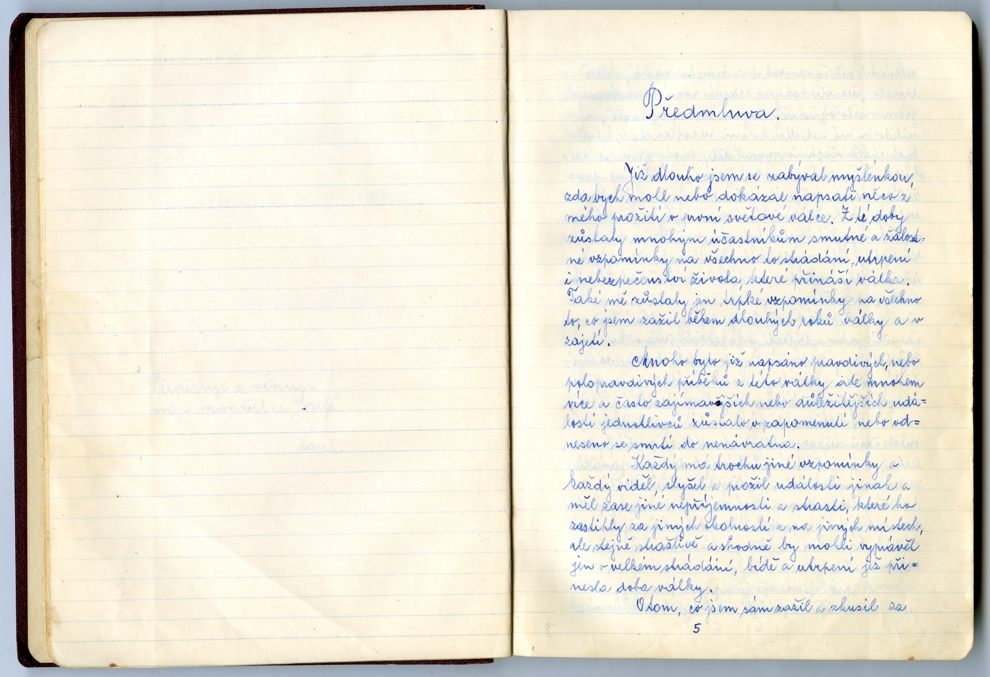 Předmluva.
Již dlouho jsem se zabýval myšlenkou,
zda bych mohl nebo dokázal napsati něco z
mého prožití v první světové válce. Z té doby
zůstaly mnohým účastníkům smutné a žalost=
né vzpomínky na všechno to strádání, utrpení
i nebezpečenství života, které přináší válka.
Také mě zůstaly jen trpké vzpomínky na všechno
to, co jsem zažil během dlouhých roků války a v
zajetí.
Mnoho bylo již napsáno pravdivých, nebo
polopravdivých příběhů z této války, ale mnohem
více a často zajímavějších nebo důležitějších udá=
lostí jednotlivců zůstalo v zapomenutí nebo od=
neseno se smrtí do nenávratna.
Každý má trochu jiné vzpomínky a
každý viděl, slyšel a prožil události jinak a
měl zase jiné nepříjemnosti a strasti, které ho
zastihly za jiných okolností a na jiných místech,
ale stejně strašlivě a shodně by mohli vyprávěl
jen o velkém strádání, bídě a utrpení jež při=
nesla doba války.
O tom, co jsem sám zažil a zkusil za
5